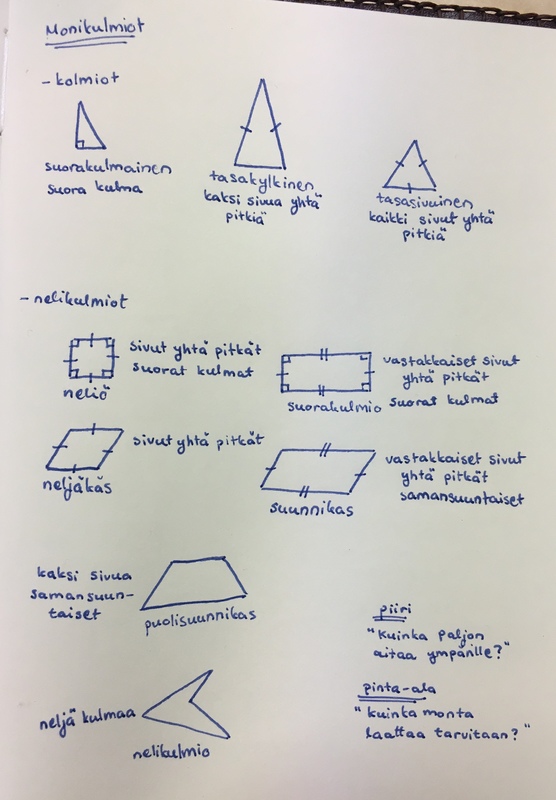 Monikulmiot
- kolmiot
suorakulmainen
suora kulma
tasakylkinen
kaksi sivua yhtä
pitkiä
tasasivuinen
kaikki sivut yhtä
pitkiä
- nelikulmiot
sivut yhtä pitkät
suorat kulmat
neliö
vastakkaiset sivut
yhtä pitkät
suorakulmio suorat kulmat
sivut yhtä pitkät
neljäkäs
vastakkaiset sivut
yhtä pitkät
samansuuntaiset
suunnikas
kaksi sivua
samansuun-
taiset
puolisuunnikas
neljä kulmaa
nelikulmio
piiri
"Kuinka paljon
aitaa ympärille?"
pinta-ala
"kuinka monta
laattaa tarvitaan?"